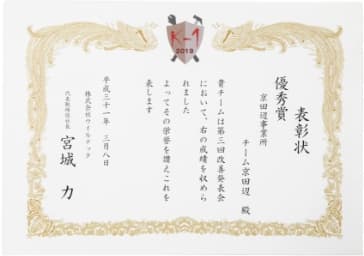 K-1
2019
表彰状
優秀賞
京田辺事業所
チーム京田辺 殿
貴チームは第三回改善発表会
において、右の成績を収めら
れました
よってその栄誉を讃えこれを
表します
平成三十一年 三月八日
株式会社ウイルテック
代表取締役社長 宮城 力